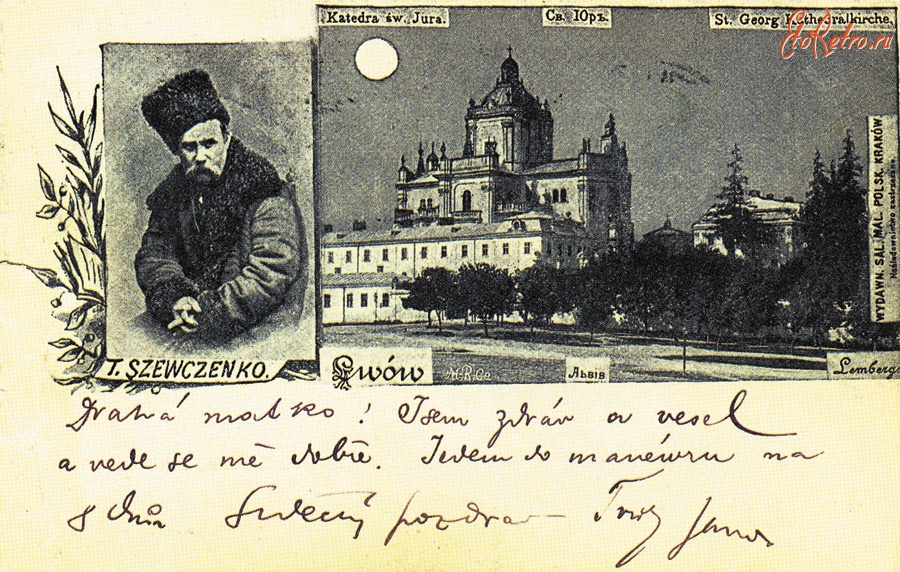 Katedra św. Jura.
Св. Юръ.
St. Georg Kathedralkirche.
EtoRetro.ru
WYDAWN. SAL. MAL. POLSK. KRAKÓW.
Naśladownictwo zastrzeżone.
T. SZEWCZENKO.
Lwów
M.R.Co
Львів
Lemberg
Drahá matko! Jsem zdráv a vesel
a vede se mě dobře. Jedem do manévru na
8 dnů Srdečný pozdrav Tvůj